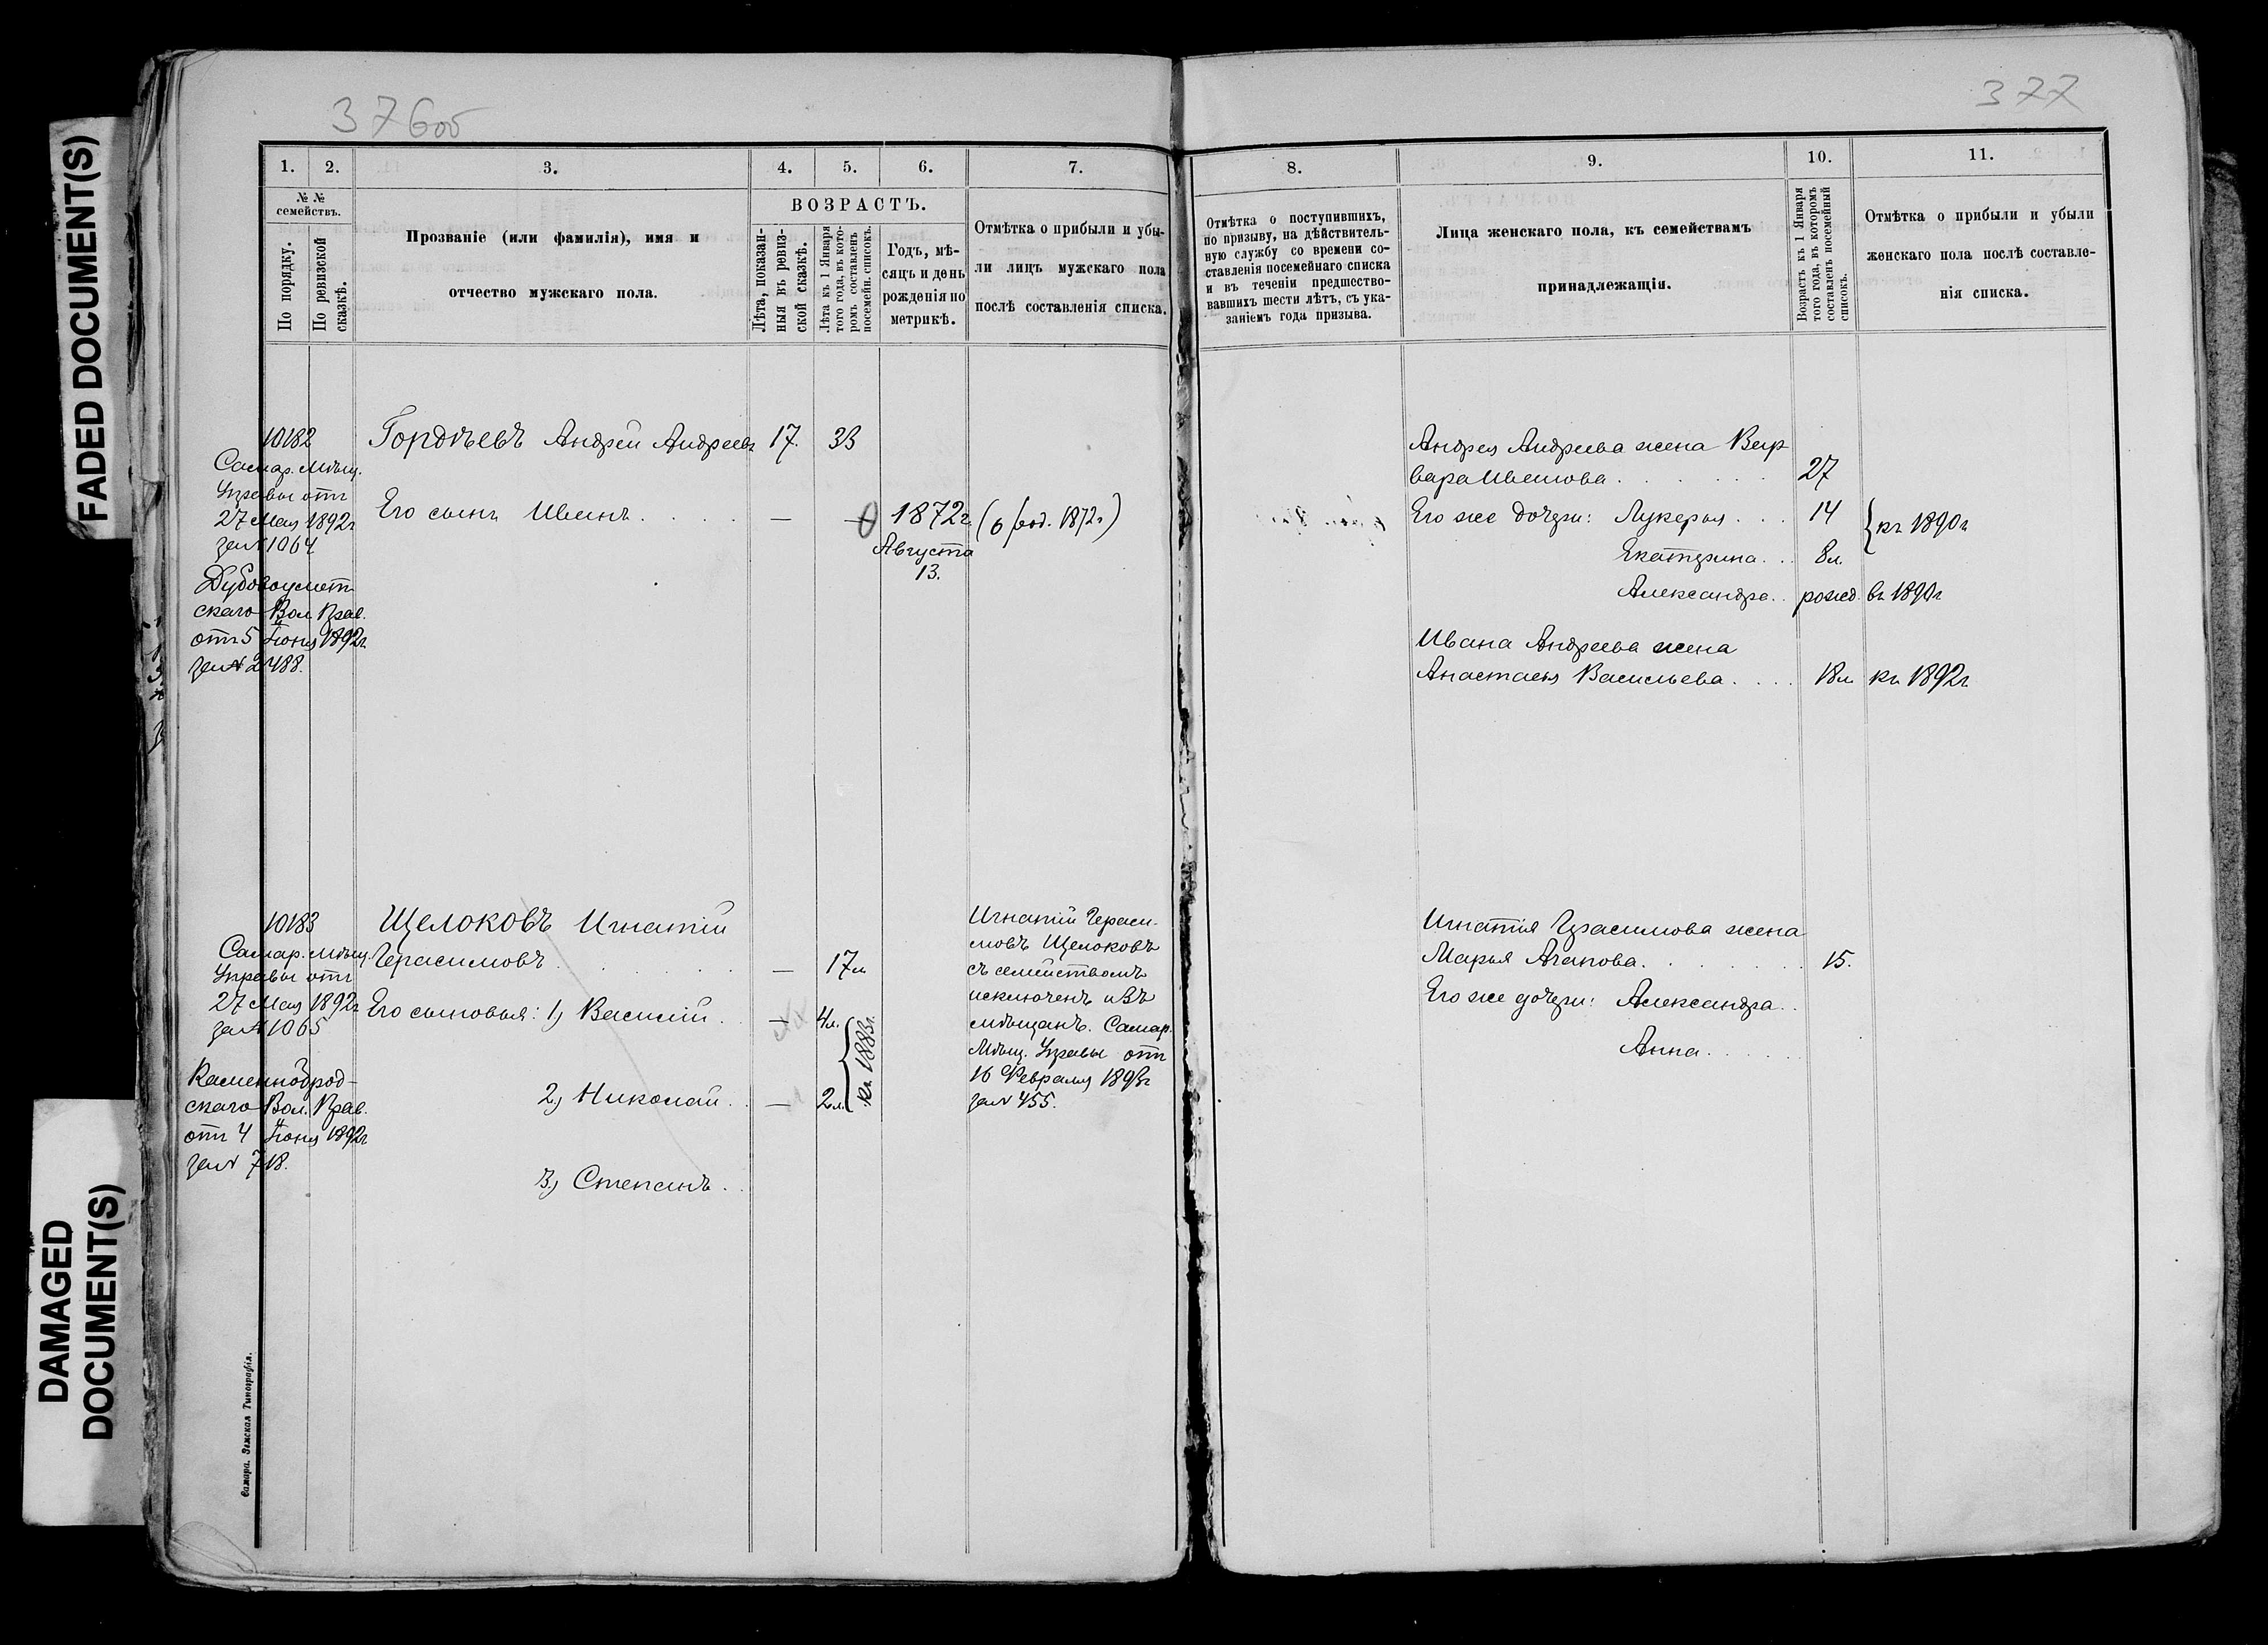 FADED DOCUMENT(S)
DAMAGED
DOCUMENT(S)
376об
1. 2. 3. 4. 5. 6. 7.
№ №
семействъ.
По порядку.
По ревизской
сказкѣ.
Прозваніе (или фамилія), имя и
отчество мужскаго пола.
ВОЗРАСТЪ.
Лѣта, показан-
ныя въ ревиз-
ской сказкѣ.
Лѣта къ 1 Января
того года, въ кото-
ромъ составленъ
посемейн. списокъ.
Годъ, мѣ-
сяцъ и день
рожденія по
метрикѣ.
Отмѣтка о прибыли и убы-
ли лицъ мужскаго пола
послѣ составленія списка.
10182
Самар. Мѣщ.
Управы отъ
27 Мая 1892г
за № 1064
Дубовоумет-
скаго Вол. Прав.
отъ 5 Іюня 1892г.
за № 2488.
Гордѣевъ Андрей Андреевъ 17. 33
Его сынъ Иванъ . . . . — 1872г. (о род. 1872г)
Августа
13.
10183
Самар. Мѣщ.
Управы отъ
27 Мая 1892г
за № 1065
Каменноброд-
скаго Вол. Прав.
отъ 4 Іюня 1892г
за № 718.
Щелоковъ Игнатій
Герасимовъ . . . . — 17л
Его сыновья: 1) Василій . — 4л.
2) Николай . . — 2л.
къ 1883г.
3) Степанъ . .
Игнатій Гераси-
мовъ Щелоковъ
съ семействомъ
исключенъ изъ
мѣщанъ. Самар.
Мѣщ. Управы отъ
16 Февраля 1893г
за № 455.
Самара. Земская Типографія.
377
8. 9. 10. 11.
Отмѣтка о поступившихъ,
по призыву, на дѣйствитель-
ную службу со времени со-
ставленія посемейнаго списка
и въ теченіи предшество-
вавшихъ шести лѣтъ, съ ука-
заніемъ года призыва.
Лица женскаго пола, къ семействамъ
принадлежащія.
Возрастъ къ 1 Января
того года, въ которомъ
составленъ посемейный
списокъ.
Отмѣтка о прибыли и убыли
женскаго пола послѣ составле-
нія списка.
Андрея Андреева жена Вар
вара Иванова . . . . . 27
Его же дочери: Лукерья . . . 14
Екатерина . . 8л.
къ 1890г
Александра . . рожд. въ 1890г
Ивана Андреева жена
Анастасья Васильева . . . . 18л къ 1892г.
Игнатія Герасимова жена
Марья Агапова . . . . . . 15.
Его же дочери: Александра . .
Анна . . . . . .